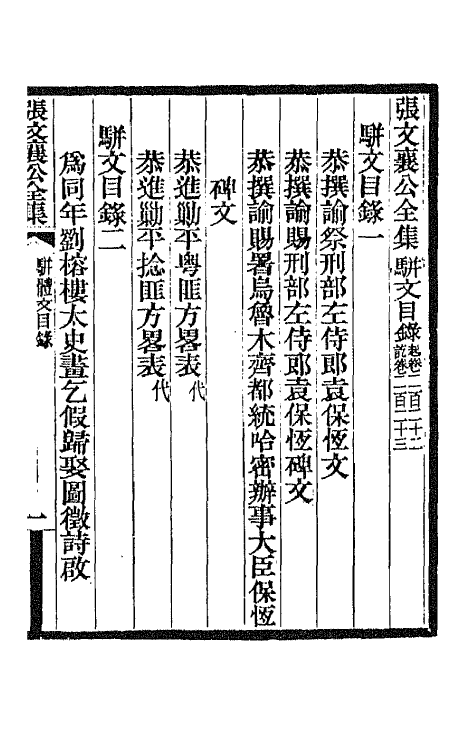 張文襄公全集 駢文目錄 起卷二百二十二 訖卷二百二十三
駢文目錄一
恭撰諭祭刑部左侍郎袁保恆文
恭撰諭賜刑部左侍郎袁保恆碑文
恭撰諭賜署烏魯木齊都統哈密辦事大臣保恆
碑文
恭進勦平粵匪方畧表代
恭進勦平捻匪方畧表代
駢文目錄二
為同年劉榕樓太史畫乞假歸娶圖徵詩啟
張文襄公全集 駢體文目錄 一